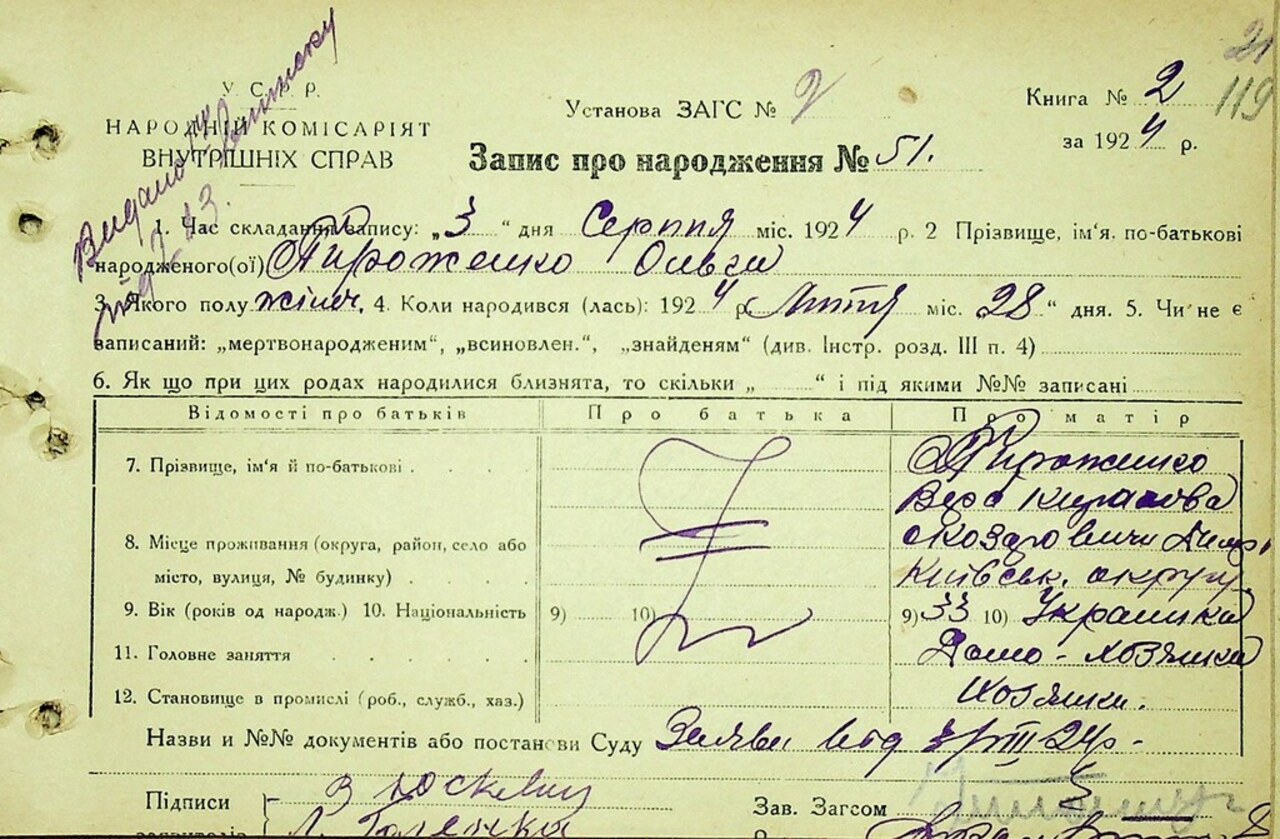 21
119
У. С. Р. Р.
НАРОДНІЙ КОМІСАРІЯТ
ВНУТРІШНІХ СПРАВ
Установа ЗАГС № 2
Книга № 2
за 1924 р.
Запис про народження № 51.
Видано
1. Час складання запису: „3“ дня Серпня міс. 1924 р. 2 Прізвище, ім'я, по-батькові
народженого(ої) Пироженко Ольга
3. Якого полу жіноч. 4. Коли народився (лась): 1924 р. Липня міс. 28“ дня. 5. Чи не є
записаний: „мертвонародженим“, „всиновлен.“, „знайденям“ (див. Інстр. розд. III п. 4)
6. Як що при цих родах народилися близнята, то скільки „ “ і під якими №№ записані
Відомості про батьків Про батька Про матір
7. Прізвище, ім'я й по-батькові Пироженко
Вера
8. Місце проживання (округа, район, село або
місто, вулиця, № будинку) Київськ. округу
9. Вік (років од народж.) 10. Національність 9) 10) 9) 33 10) Українка
11. Головне заняття Домо-хозяйка
12. Становище в промислі (роб., служб., хаз.) Хозяйка.
Назви и №№ документів або постанови Суду Заява від 3/VIII 24р.
Підписи
Зав. Загсом
заявителів